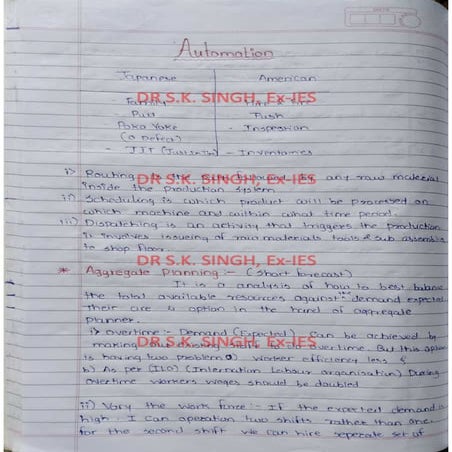 Automation
Japanese American
- Family
DR S.K. SINGH, Ex-IES
Pull Push
Poka Yoke - Inspection
(0 Defect)
- JIT (Just in Tm) - Inventories
i) Routing is the by any raw material
DR S.K. SINGH, Ex-IES
inside the production system
ii) Scheduling is which product will be processed on
which machine and within what time period.
DR S.K. SINGH, Ex-IES
iii) Dispatching is an activity that triggers the production
it involves issueing of raw materials tools & sub assemblies
to shop floor.
DR S.K. SINGH, Ex-IES
* Aggregate Planning :- (Short forecast)
It is a analysis of how to best balance
the total available resources against the demand expected
Their are 6 option in the hand of aggregate
planner.
i) overtime :- Demand (Expected) can be achieved by
making to overtime. But this option
DR S.K. SINGH, Ex-IES
is having two problem a) worker efficiency less &
b) As per (ILO) (Internation Labour organisation) During
overtime workers wages should be doubled
ii) Vary the work force :- If the expected demand is
high. I can operation two shifts rather than one.
for the second shift we can hire seperate set of